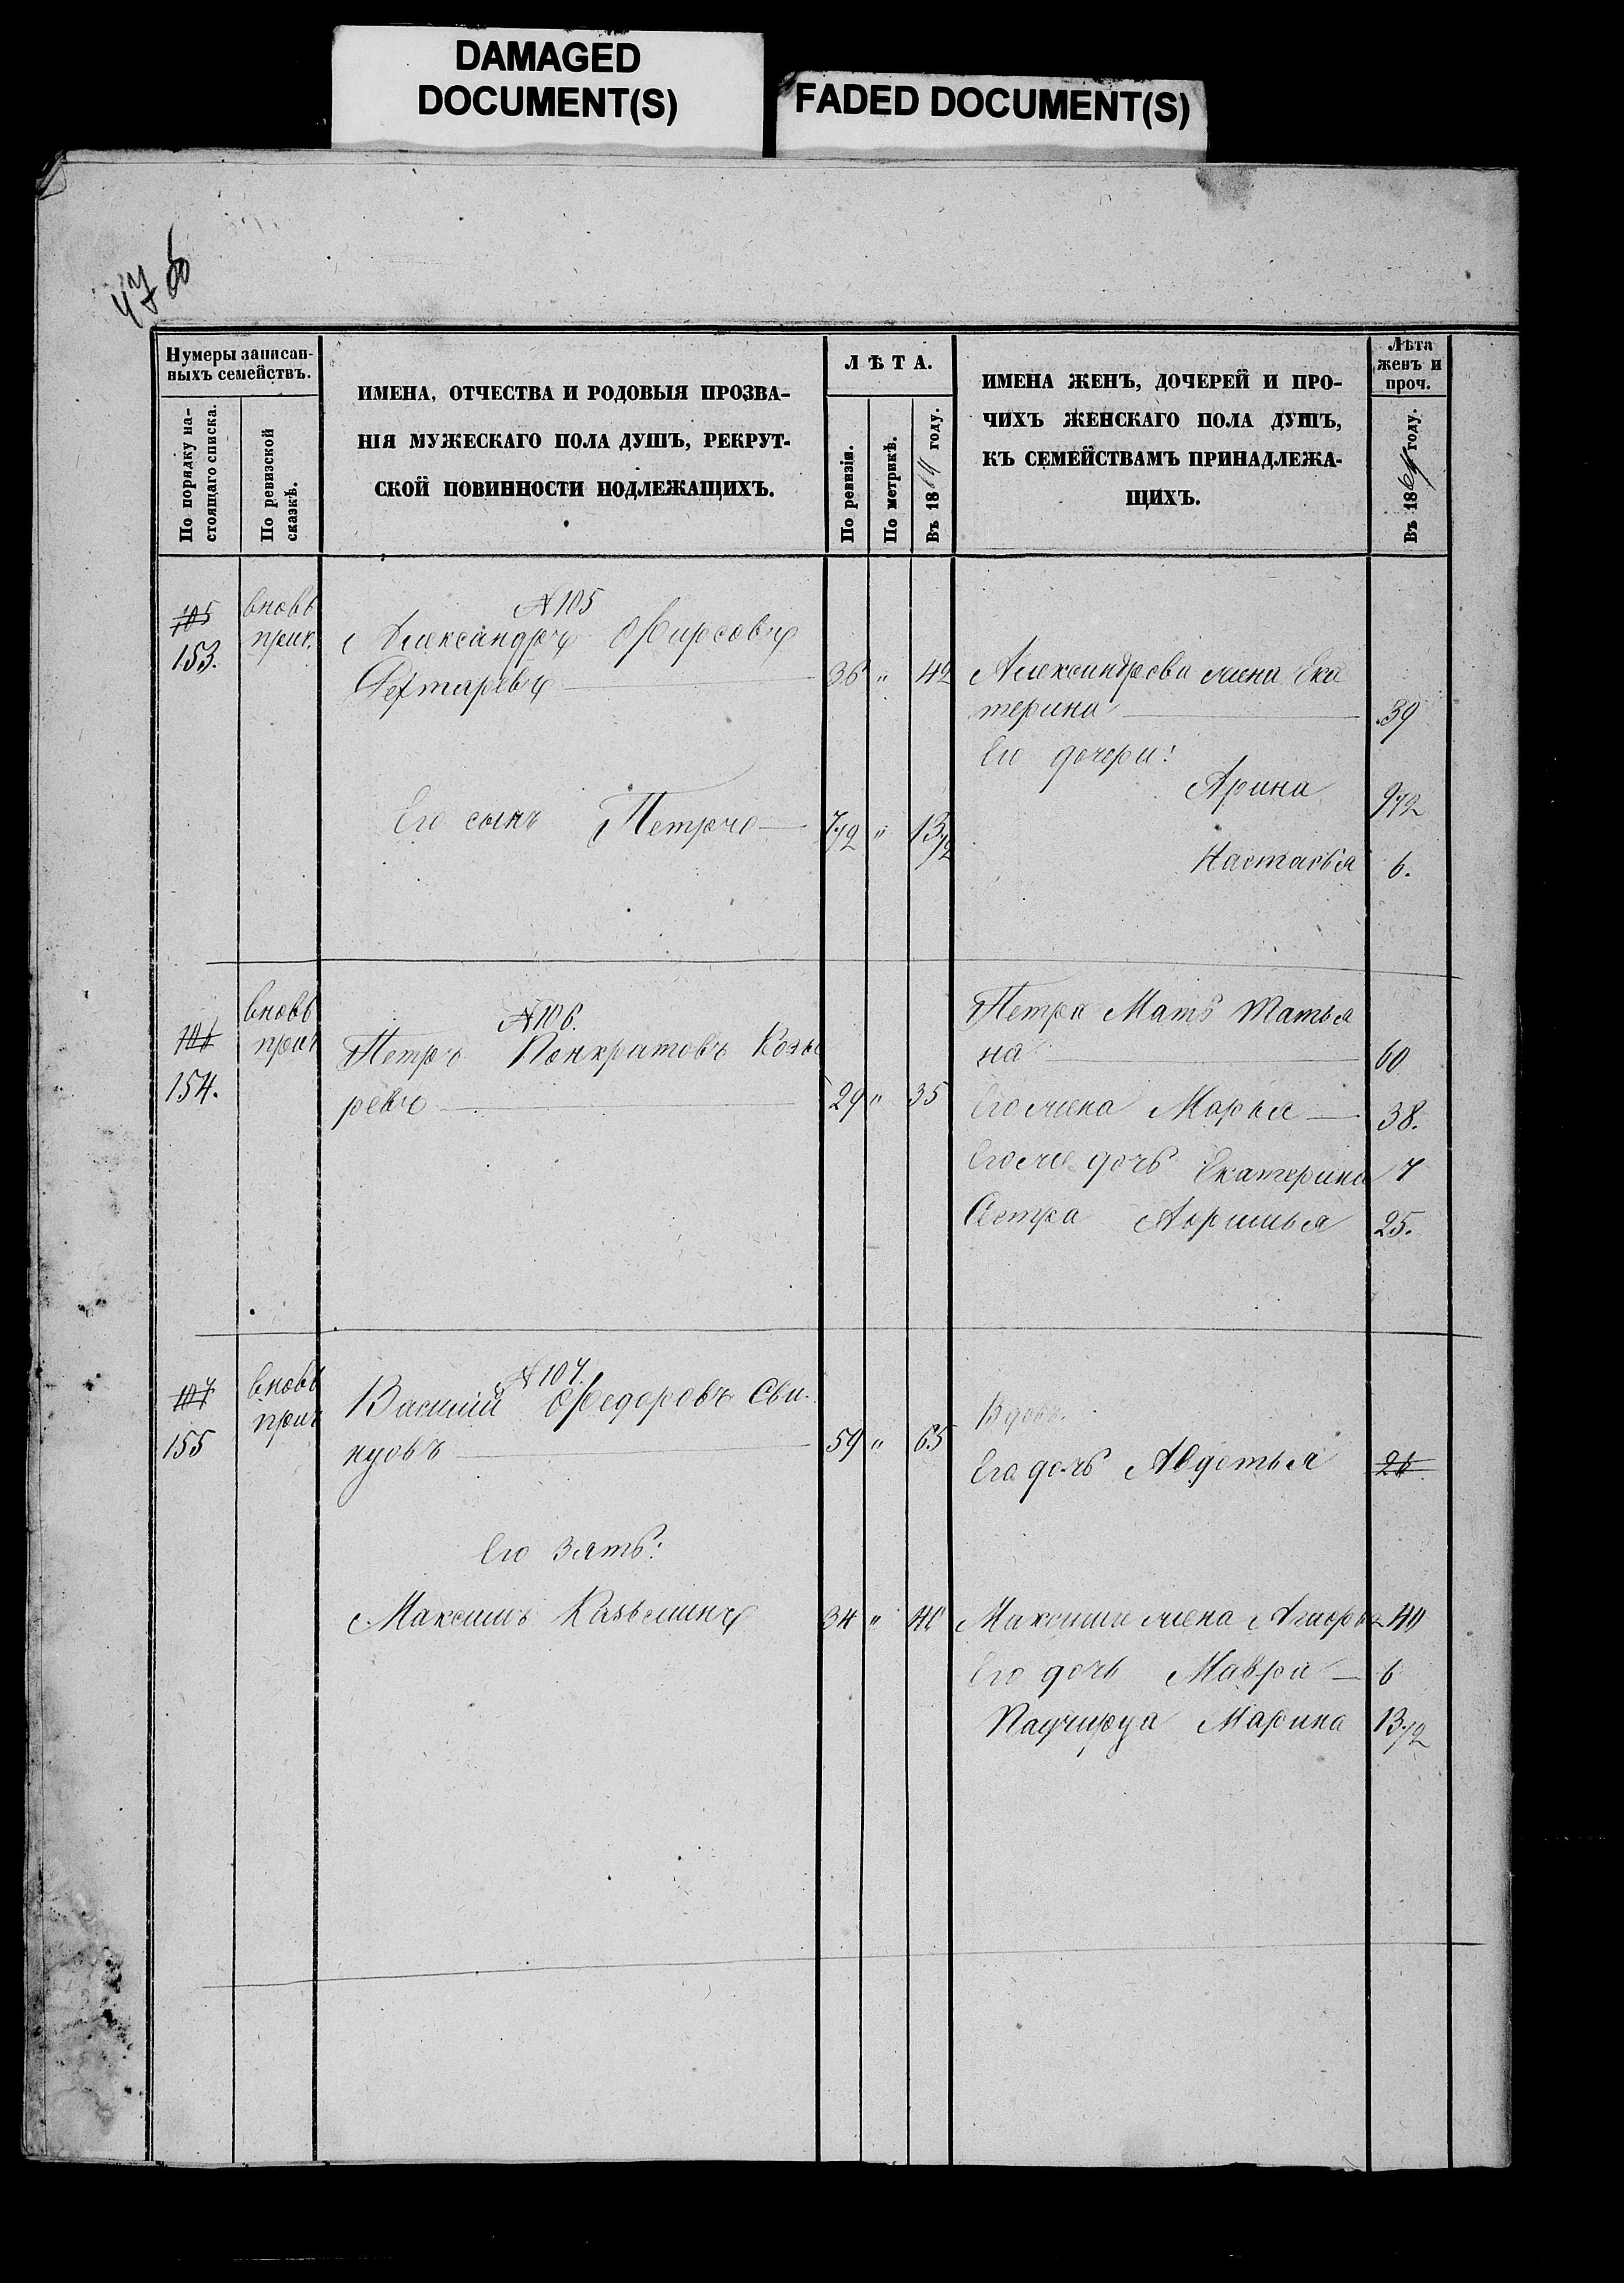 DAMAGED
DOCUMENT(S)
FADED DOCUMENT(S)
Нумеры записан-
ныхъ семействъ.
По порядку на-
стоящаго списка.
По ревизской
сказкѣ.
ИМЕНА, ОТЧЕСТВА И РОДОВЫЯ ПРОЗВА-
НІЯ МУЖЕСКАГО ПОЛА ДУШЪ, РЕКРУТ-
СКОЙ ПОВИННОСТИ ПОДЛЕЖАЩИХЪ.
ЛѢТА.
По ревизіи.
По метрикѣ.
Въ 1864 году.
ИМЕНА ЖЕНЪ, ДОЧЕРЕЙ И ПРО-
ЧИХЪ ЖЕНСКАГО ПОЛА ДУШЪ,
КЪ СЕМЕЙСТВАМЪ ПРИНАДЛЕЖА-
ЩИХЪ.
Лѣта
женъ и
проч.
Въ 1864 году.
105
153.
вновь
прич.
№ 105
Александръ Фирсовъ
Дехтяревъ
36 " 42
Его сынъ Петръ
7 1/2 " 13 1/2
Александрова жена Ека
терина 39
Его дочери:
Арина 9 1/2
Настасья 6.
106
154.
вновь
прич
№ 106.
Петръ Понкратовъ Козы
ревъ 29 " 35
Петра Мать Татья
на 60
Его жена Марья 38.
Его же дочь Екатерина 7
Сестра 25.
107
155
вновь
прич
№ 107.
Василій Федоровъ Сви-
нцовъ 59 " 65
Его зять:
Максимъ 34 " 40
Вдовъ.
Его дочь Авдотья 26
Максима жена 40
Его дочь Мавра 6
Падчирца Марина 13 1/2